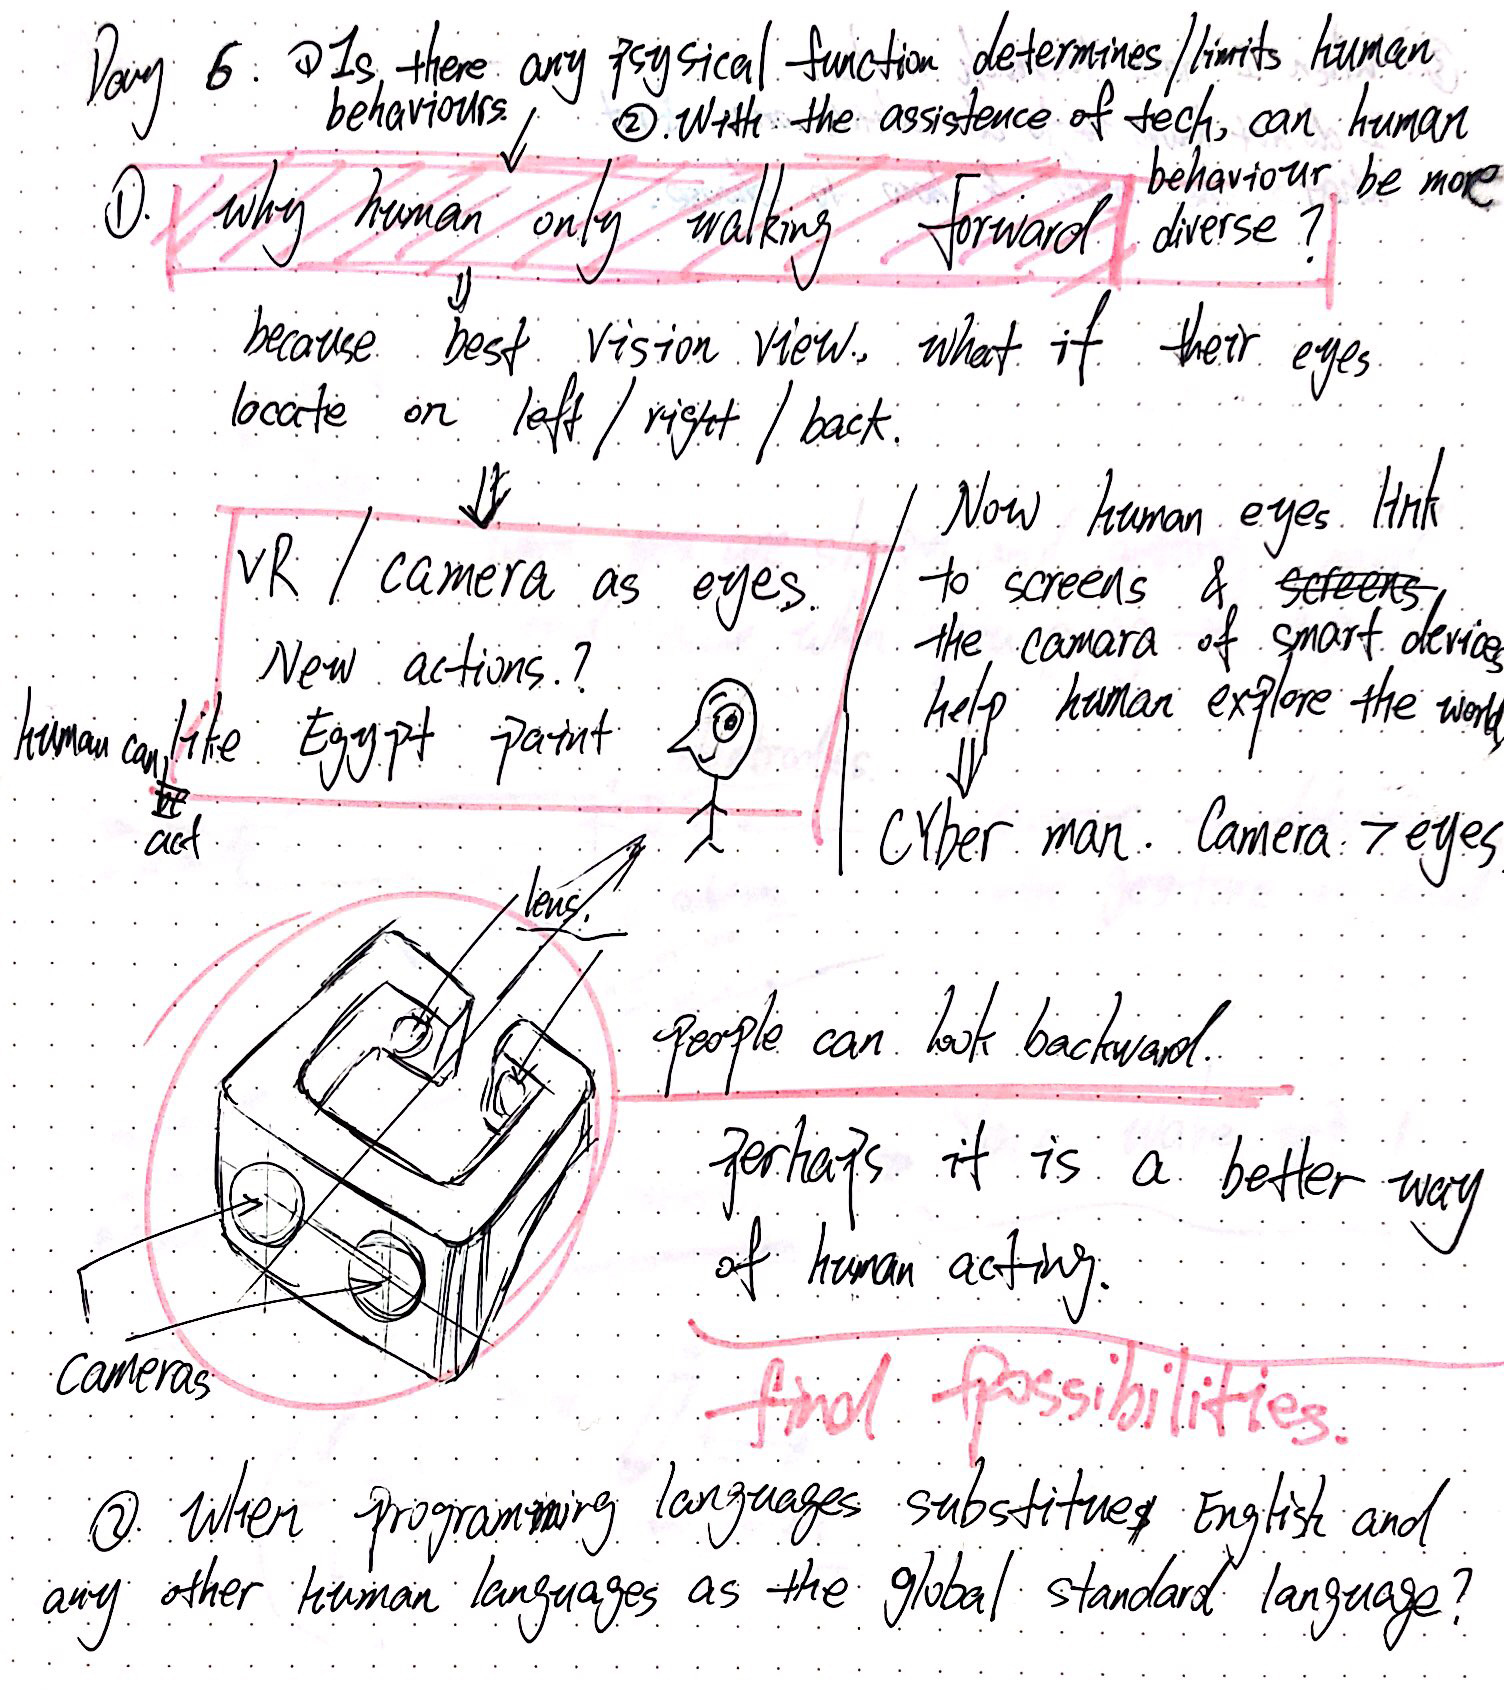 Day 6. ① Is there any psysical function determines/limits human
behaviours.
②. With the assistence of tech, can human
behaviour be more
diverse?
①. why human only walking forward
because best vision view. what if their eyes
locate on left / right / back.
VR / camera as eyes.
New actions.?
human can like Egypt paint
be
act
Now human eyes link
to screens & screens
the camara of smart devices
help human explore the world
CYber man. Camera > eyes
lens.
people can look backward.
Perhaps it is a better way
of human acting.
cameras
find possibilities.
②. When programming languages substitues English and
any other human languages as the global standard language?